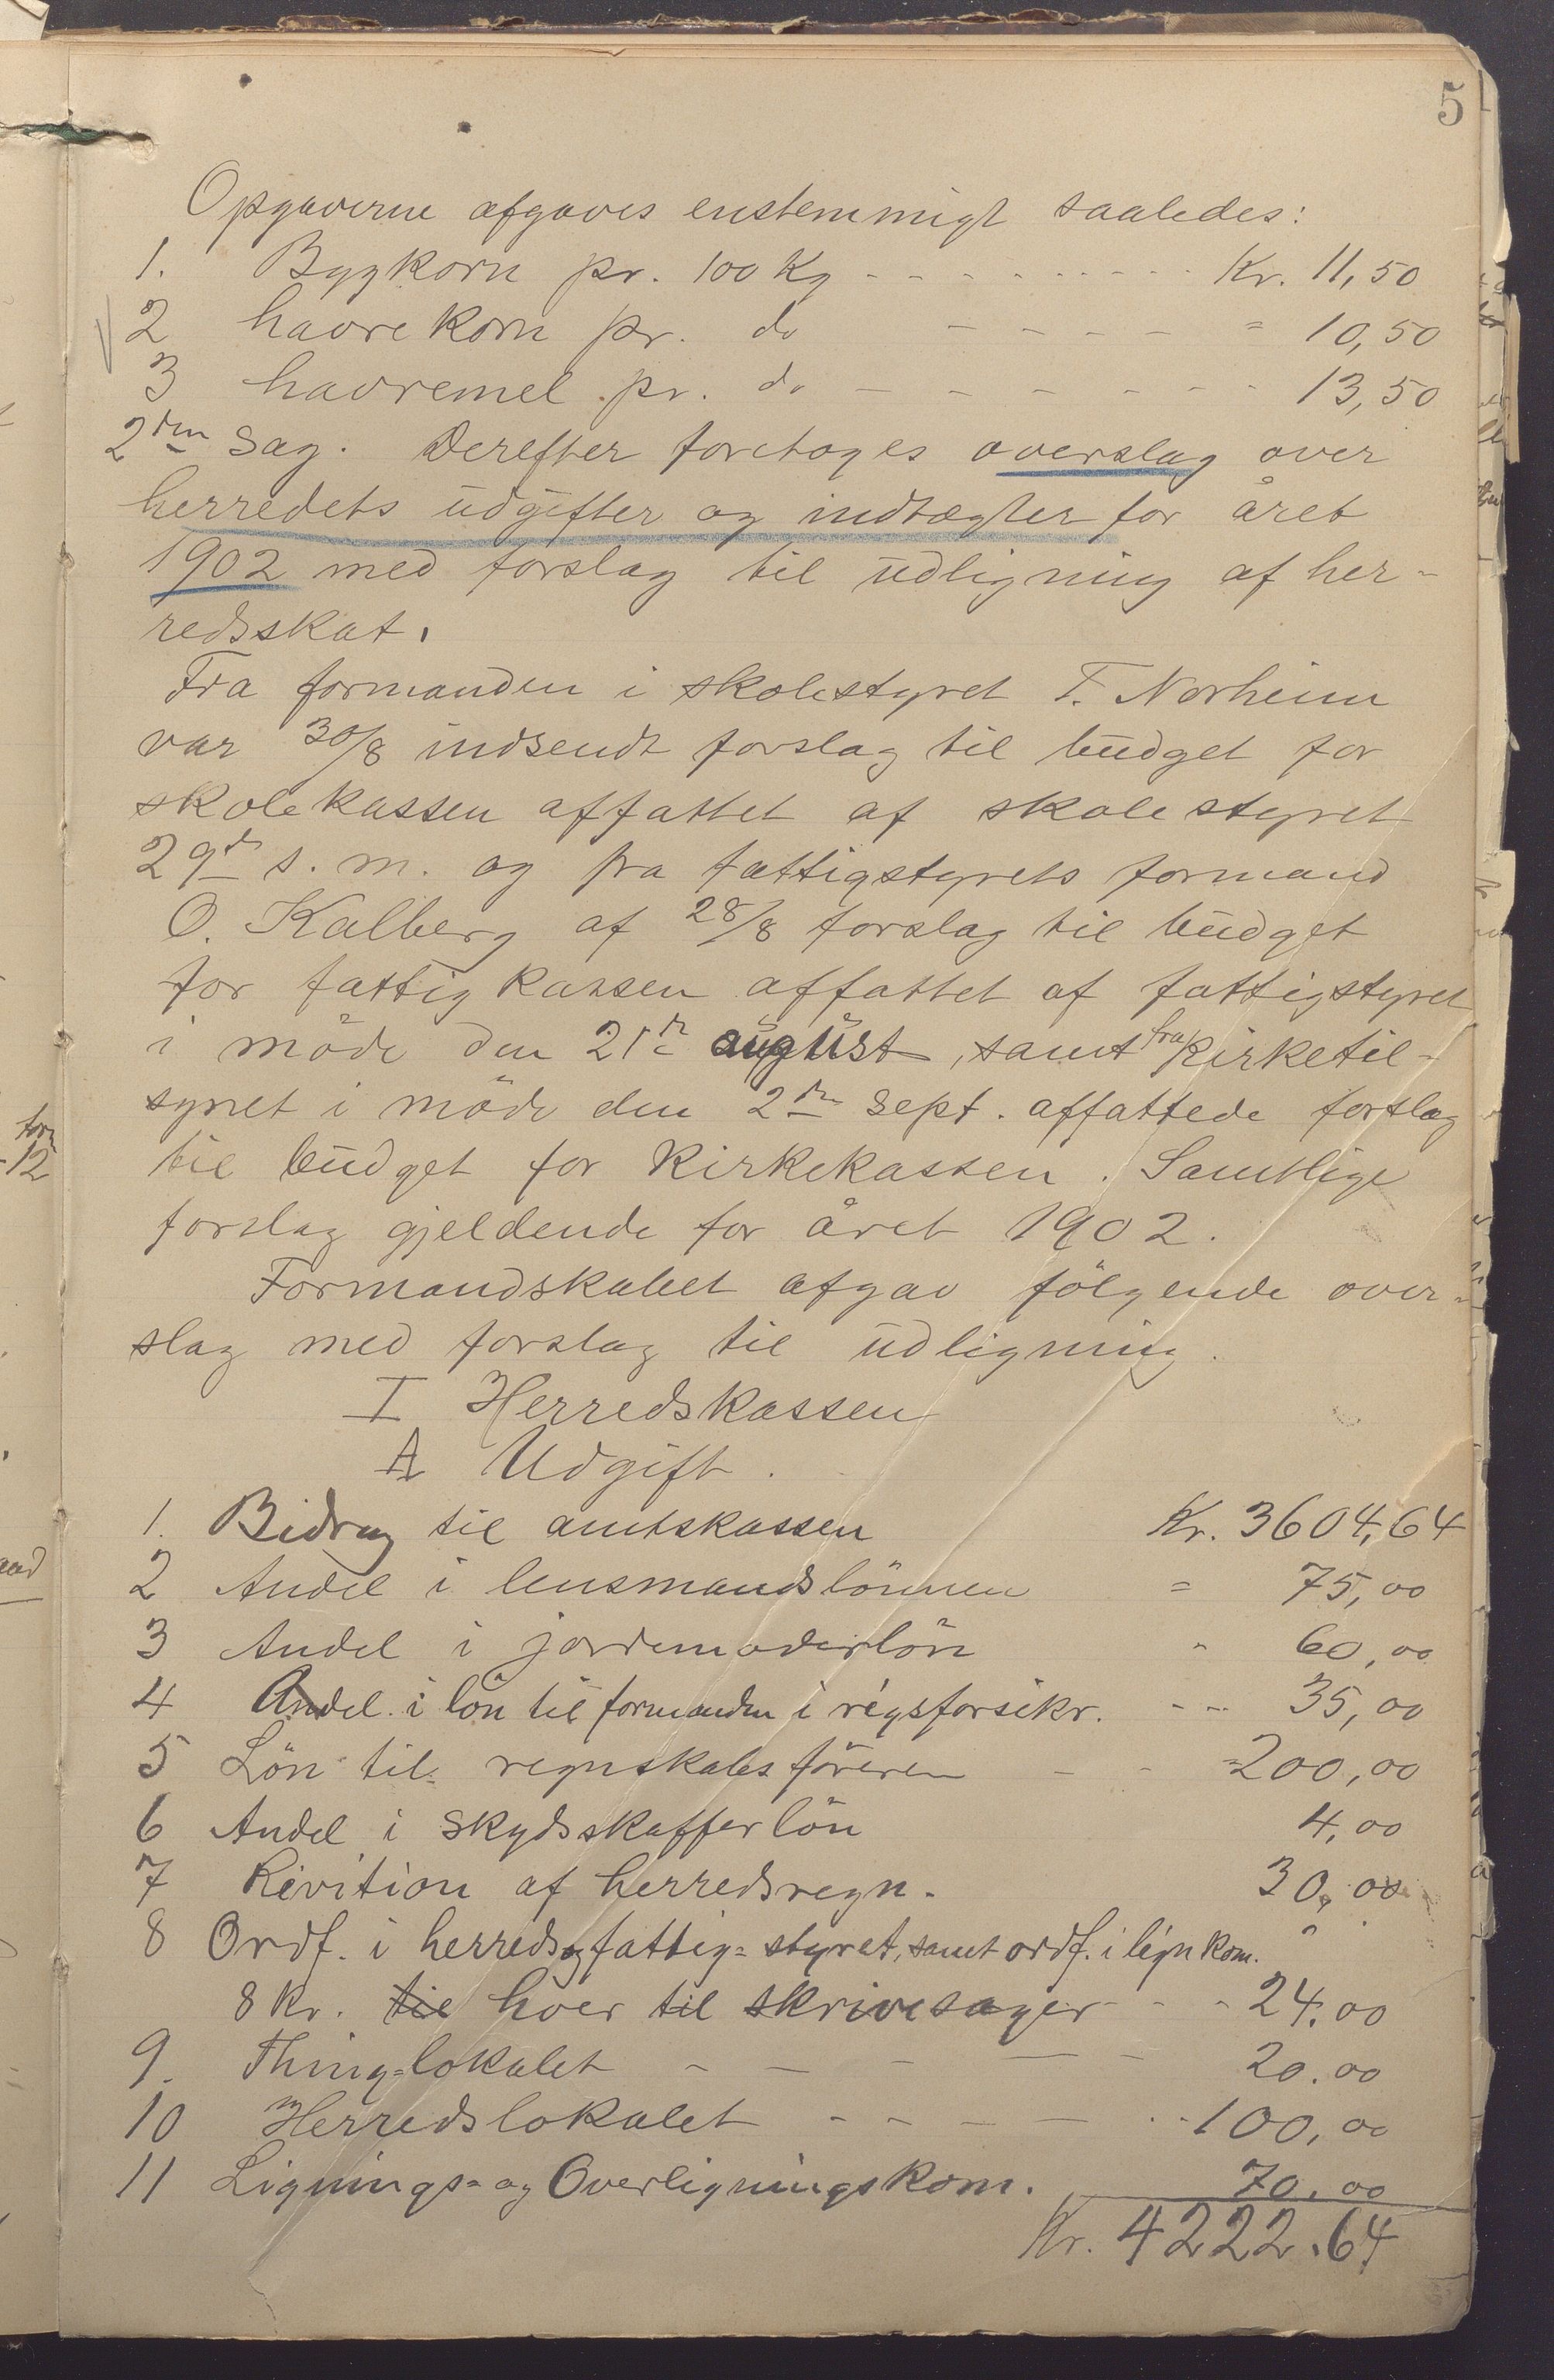 5
Opgaverne afgaves enstemmigt saaledes:
1. Bygkorn pr. 100 Kg - - - - - - - - - Kr. 11,50
2 havrekorn pr. do - - - - = 10,50
3 havremel pr. do - - - - - - - 13,50
2den Sag. Derefter foretoges overslag over
herredets udgifter og indtægter for året
1902 med forslag til udligning af her-
redsskat.
Fra formanden i skolestyret T. Norheim
var 30/8 indsendt forslag til budget for
skolekassen affattet af skolestyret
29de s. m. og fra fattigstyrets formand
O. Kalberg af 28/8 forslag til budget
for fattigkassen affattet af fattigstyret
i möde den 21de august, samt fra Kirketil-
synet i möde den 2den Sept. affattede forslag
til budget for Kirkekassen. Samtlige
forslag gjeldende for året 1902.
Formandskabet afgav fölgende over-
slag med forslag til udligning.
I Herredskassen
A Udgift.
1. Bidrag til amtskassen Kr. 3604,64
2 Andel i lensmandslönnen = 75,00
3 Andel i jordemoderlön " 60,00
4 Andel i lön til formanden i rigsforsikr. - - - 35,00
5 Lön til regnskabsföreren - - = 200,00
6 Andel i Skydsskafferlön 4,00
7 Revition af herredsregn. 30,00
8 Ordf. i herreds og fattig= styret, samt ordf. i lign kom. "
8 Kr. til hver til skrivesager - - - 24.00
9. Thing=lokalet - - - - - - 20.00
10 Herredslokalet - - - - - - - 100,00
11 Lignings= og Overligningskom. 70.00
Kr. 4222.64
12